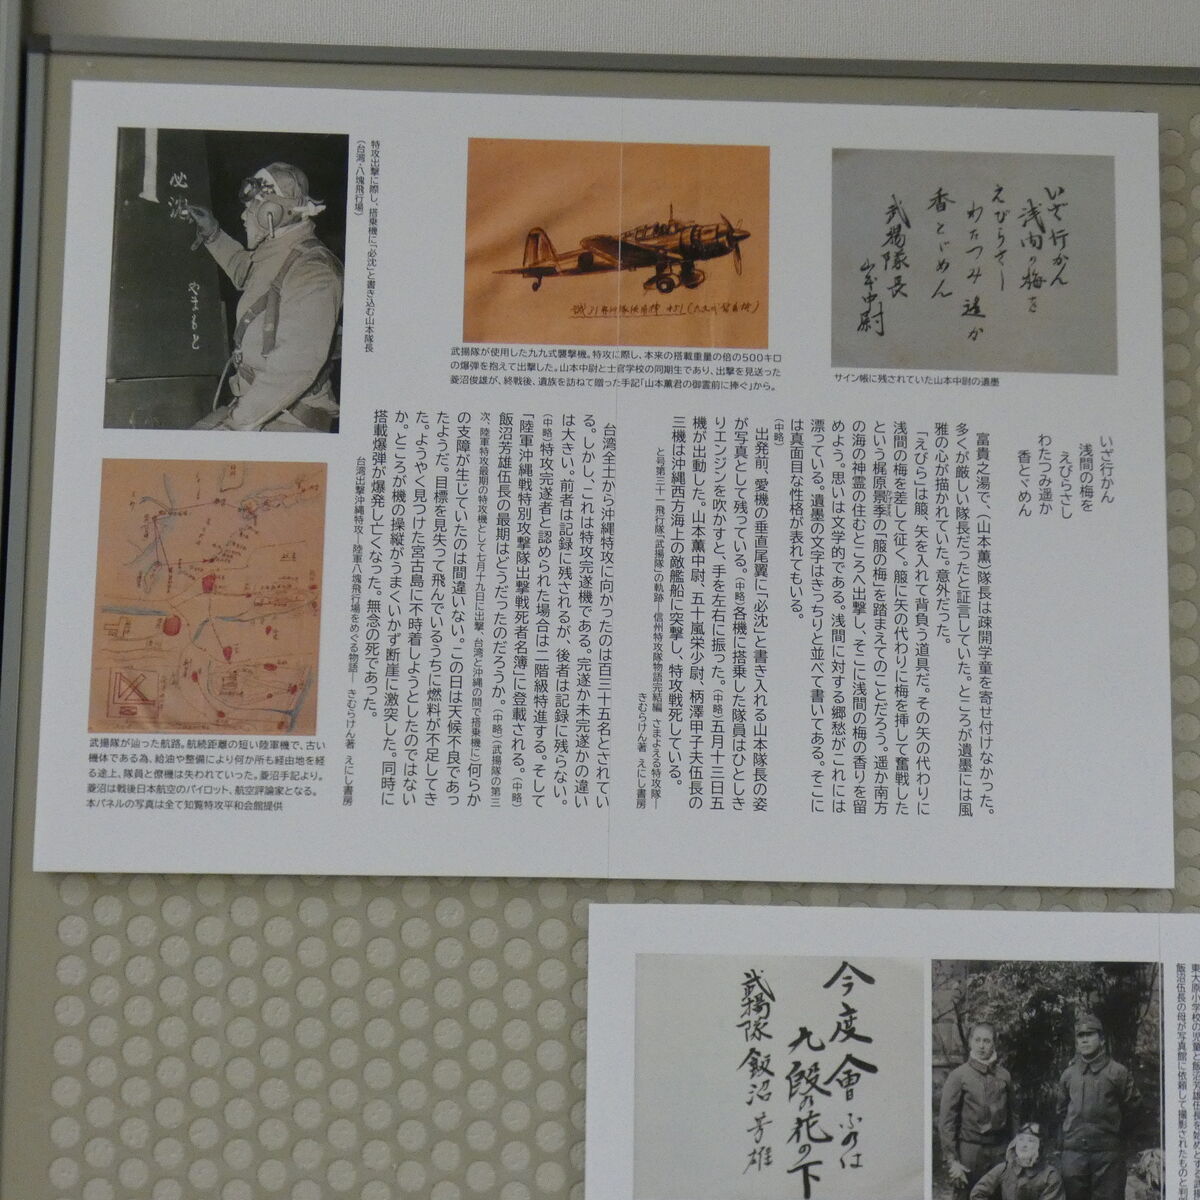 いざ行かん
浅間の梅を
えびらさし
わたつみ遥か
香とゞめん
武揚隊長
山本中尉
サイン帳に残されていた山本中尉の遺墨
武揚隊が使用した九九式襲撃機。特攻に際し、本来の搭載重量の倍の500キロ
の爆弾を抱えて出撃した。山本中尉と士官学校の同期生であり、出撃を見送った
菱沼俊雄が、終戦後、遺族を訪ねて贈った手記「山本薫君の御霊前に捧ぐ」から。
特攻出撃に際し、搭乗機に「必沈」と書き込む山本隊長
(台湾・八塊飛行場)
必沈
やまもと
いざ行かん
浅間の梅を
えびらさし
わたつみ遥か
香とゞめん
富貴之湯で、(山本薫)隊長は疎開学童を寄せ付けなかった。
多くが厳しい隊長だったと証言していた。ところが遺墨には風
雅の心が描かれていた。意外だった。
「えびら」は箙、矢を入れて背負う道具だ。その矢の代わりに
浅間の梅を差して征く。箙に矢の代わりに梅を挿して奮戦した
という梶原景季の「箙の梅」を踏まえてのことだろう。遥か南方
の海の神霊の住むところへ出撃し、そこに浅間の梅の香りを留
めよう。思いは文学的である。浅間に対する郷愁がこれには
漂っている。遺墨の文字はきっちりと並べて書いてある。そこに
は真面目な性格が表れてもいる。
(中略)
出発前、愛機の垂直尾翼に「必沈」と書き入れる山本隊長の姿
が写真として残っている。(中略)各機に搭乗した隊員はひとしき
りエンジンを吹かすと、手を左右に振った。(中略)五月十三日五
機が出動した。山本薫中尉、五十嵐栄少尉、柄澤甲子夫伍長の
三機は沖縄西方海上の敵艦船に突撃し、特攻戦死している。
と号第三十一飛行隊「武揚隊」の軌跡―信州特攻隊物語完結編 さまよえる特攻隊―
きむらけん著 えにし書房
台湾全土から沖縄特攻に向かったのは百三十五名とされてい
る。しかし、これは特攻完遂機である。完遂か未完遂かの違い
は大きい。前者は記録に残されるが、後者は記録に残らない。
(中略)特攻完遂者と認められた場合は二階級特進する。そして
「陸軍沖縄戦特別攻撃隊出撃戦死者名簿」に登載される。(中略)
飯沼芳雄伍長の最期はどうだったのだろうか。(中略)(武揚隊の第三
次、陸軍特攻最期の特攻機として七月十九日に出撃、台湾と沖縄の間で搭乗機に)何らか
の支障が生じていたのは間違いない。この日は天候不良であっ
たようだ。目標を見失って飛んでいるうちに燃料が不足してき
た。ようやく見つけた宮古島に不時着しようとしたのではない
か。ところが機の操縦がうまくいかず断崖に激突した。同時に
搭載爆弾が爆発し亡くなった。無念の死であった。
台湾出撃沖縄特攻―陸軍八塊飛行場をめぐる物語― きむらけん著 えにし書房
武揚隊が辿った航路。航続距離の短い陸軍機で、古い
機体である為、給油や整備により何か所も経由地を経
る途上、隊員と僚機は失われていった。菱沼手記より。
菱沼は戦後日本航空のパイロット、航空評論家となる。
本パネルの写真は全て知覧特攻平和会館提供
今度會ふのは
九段の花の下
武揚隊 飯沼芳雄
東大原小学校の児童と飯沼芳雄伍長を始めとする
飯沼伍長の母が写真館に依頼して撮影されたものと